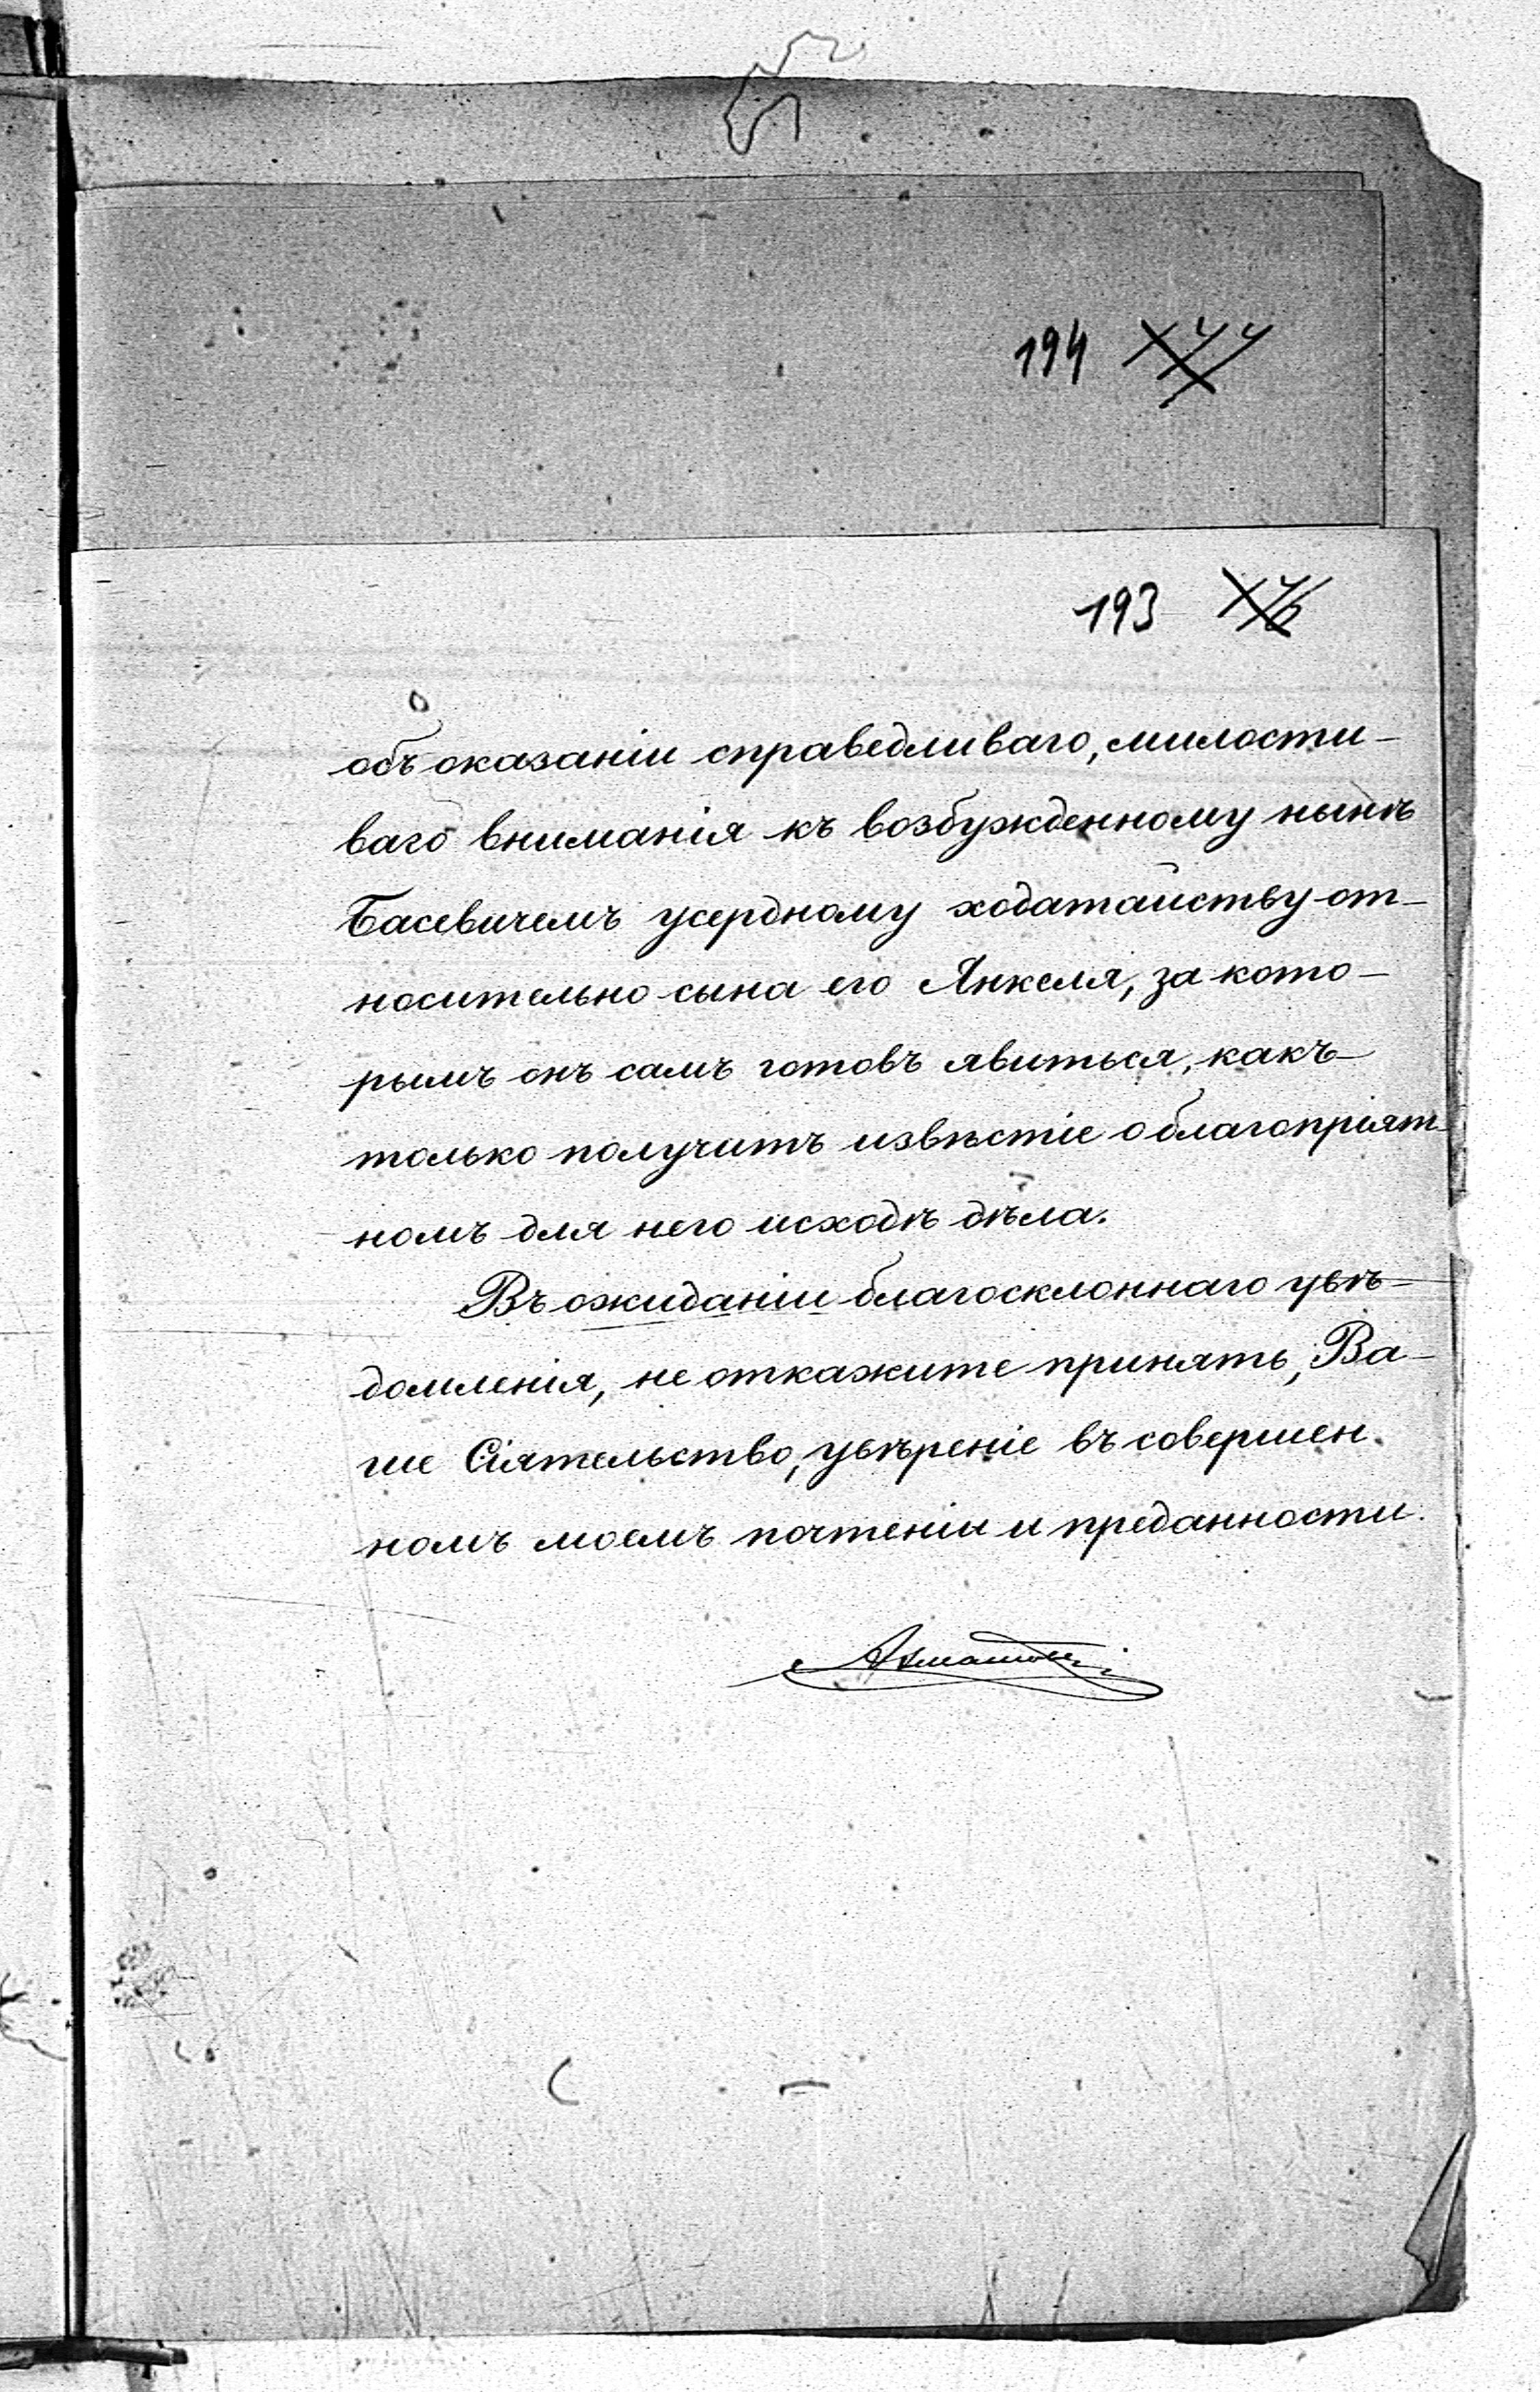 194
193
объ оказаніи справедливаго, милости-
ваго вниманія къ возбужденному нынѣ
Басевичемъ усердному ходатайству от-
носительно сына его Янкеля, за кото-
рымъ онъ самъ готовъ явиться, какъ
только получитъ извѣстіе о благопріят-
номъ для него исходѣ дѣла.
Въ ожиданіи благосклоннаго увѣ-
домленія, не откажите принять, Ва-
ше Сіятельство, увѣреніе въ совершен-
номъ моемъ почтеніи и преданности.